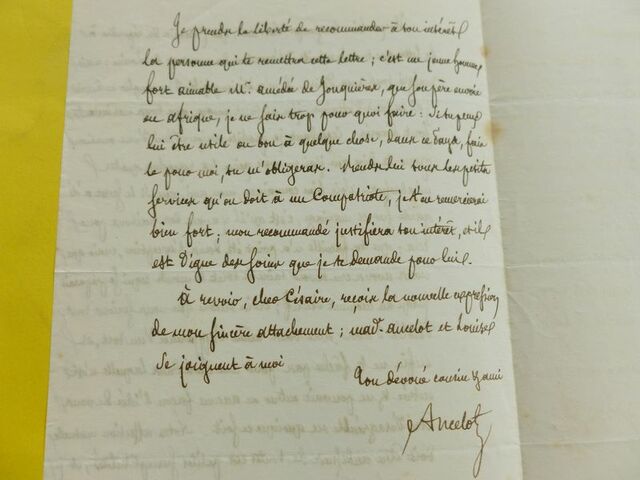 Je prends la liberté de recommander à ton intérêt
la personne qui te remettra cette lettre ; c'est un jeune homme
fort aimable Mr. amédée de Jonquières, que son père envoie
en afrique, je ne sais trop pour quoi faire : Si tu peux
lui être utile ou bon à quelque chose, dans ce Pays, fais
le pour moi, tu m'obligeras. Rends lui tous les petits
services qu'on doit à un Compatriote, je t'en remercierai
bien fort ; mon recommandé justifiera ton intérêt, et il
est Digne des soins que je te demande pour lui.
À revoir, cher Césaire, reçois la nouvelle expression
de mon sincère attachement ; mad. ancelot et Louise
se joignent à moi
Ton dévoué cousin & ami
Ancelot